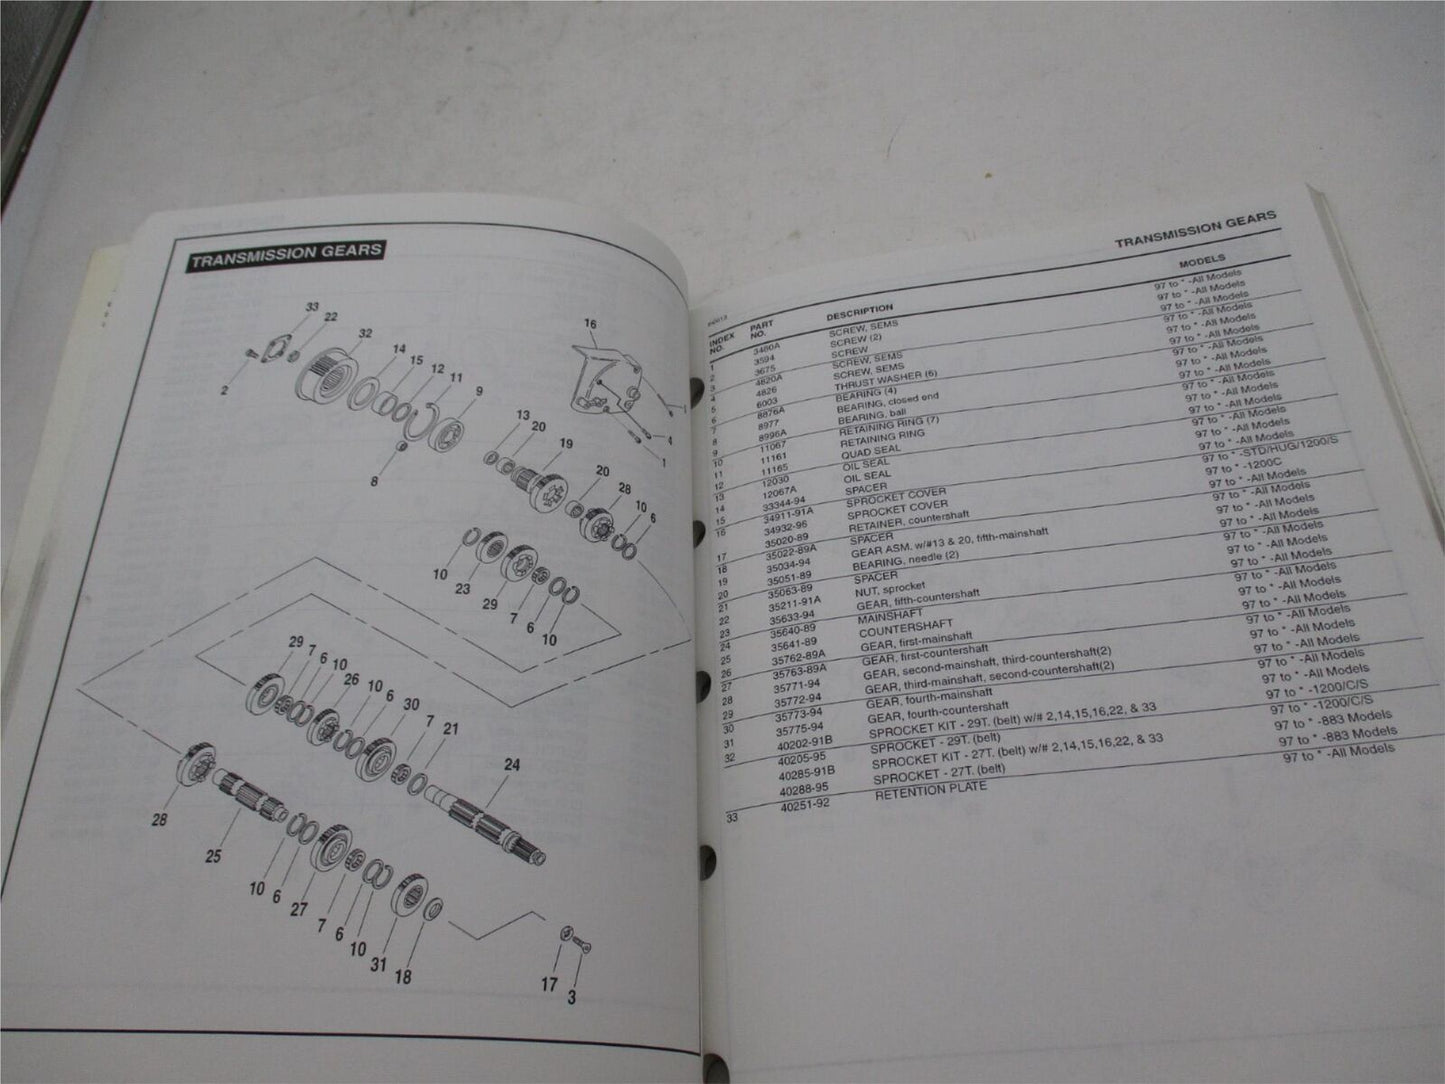 TRANSMISSION GEARS
33
22
32
14
15
12
11
9
2
8
16
1
4
1
13
20
19
20
28
10
6
10
23
29
7
6
10
29
7
6
10
26
10
6
30
7
21
24
28
25
10
6
27
7
6
10
31
18
17
3
TRANSMISSION GEARS
INDEX NO. PART NO. DESCRIPTION MODELS
1 3460A SCREW, SEMS 97 to * -All Models
2 3594 SCREW (2) 97 to * -All Models
3 3675 SCREW 97 to * -All Models
4 4820A SCREW, SEMS 97 to * -All Models
5 4826 SCREW, SEMS 97 to * -All Models
6 6003 THRUST WASHER (6) 97 to * -All Models
7 8876A BEARING (4) 97 to * -All Models
8 8977 BEARING, closed end 97 to * -All Models
9 8996A BEARING, ball 97 to * -All Models
10 11067 RETAINING RING (7) 97 to * -All Models
11 11161 RETAINING RING 97 to * -All Models
12 11165 QUAD SEAL 97 to * -All Models
13 12030 OIL SEAL 97 to * -All Models
14 12067A OIL SEAL 97 to * -All Models
15 33344-94 SPACER 97 to * -All Models
16 34911-91A SPROCKET COVER 97 to * -STD/HUG/1200/S
34932-96 SPROCKET COVER 97 to * -1200C
17 35020-89 RETAINER, countershaft 97 to * -All Models
18 35022-89A SPACER 97 to * -All Models
19 35034-94 GEAR ASM. w/#13 & 20, fifth-mainshaft 97 to * -All Models
20 35051-89 BEARING, needle (2) 97 to * -All Models
21 35063-89 SPACER 97 to * -All Models
22 35211-91A NUT, sprocket 97 to * -All Models
23 35633-94 GEAR, fifth-countershaft 97 to * -All Models
24 35640-89 MAINSHAFT 97 to * -All Models
25 35641-89 COUNTERSHAFT 97 to * -All Models
26 35762-89A GEAR, first-mainshaft 97 to * -All Models
27 35763-89A GEAR, first-countershaft 97 to * -All Models
28 35771-94 GEAR, second-mainshaft, third-countershaft(2) 97 to * -All Models
29 35772-94 GEAR, third-mainshaft, second-countershaft(2) 97 to * -All Models
30 35773-94 GEAR, fourth-mainshaft 97 to * -All Models
31 35775-94 GEAR, fourth-countershaft 97 to * -All Models
32 40202-91B SPROCKET KIT - 29T. (belt) w/# 2,14,15,16,22, & 33 97 to * -1200/C/S
40205-95 SPROCKET - 29T. (belt) 97 to * -1200/C/S
40285-91B SPROCKET KIT - 27T. (belt) w/# 2,14,15,16,22, & 33 97 to * -883 Models
40288-95 SPROCKET - 27T. (belt) 97 to * -883 Models
33 40251-92 RETENTION PLATE 97 to * -All Models